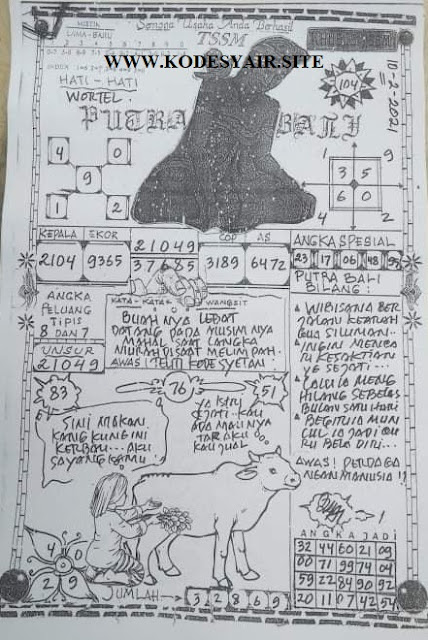 Semoga Usaha Anda Berhasil
MISTIK
LAMA - BARU
TSSM
WWW.KODESYAIR.SITE
HATI - HATI
WORTEL.
104
10-2-2021
PUTRA BALI
4 0
9
1 2
1 9
3 5
6 0
4 2
KEPALA EKOR
2104 9365
21049
37685
COP AS
3189 6472
ANGKA SPESIAL
23 17 06 48 95
ANGKA
PELUANG
TIPIS
8 DAN 7
UNSUR
21049
KATA - KATA WANGSIT
BUAH NYA LEBAT
DATANG PADA MUSIM NYA
MAHAL SAAT LANGKA
MURAH DI SAAT MELIM PAH.
AWAS! TELITI KODE SYETAN!
PUTRA BALI
BILANG:
WIBISANA BER
JALAN KEARAH
GUA SILUMAN..
INGIN MENCA
RI KESAKTIAN
YG SEJATI...
LALU IA MENG
HILANG SEBELAS
BULAN SATU HARI
BEGITU IA MUN
CUL IA JADI GU
RU BELA DIRI...
AWAS! PERDAGA
NGAN MANUSIA!!
83
76
51
SINI MAKAN
KANG KUNG INI
KERBAU... AKU
SAYANG KAMU!
YA ISTRI
SEJATI.. KALI
ADA MAU NYA
TAR AKU DO
KAU JUAL
ANGKA JADI
32 44 60 21 09
00 71 99 74 04
59 22 84 90 92
20 11 07 42 54
4 0
2 9
JUMLAH
3 2 8 6 9